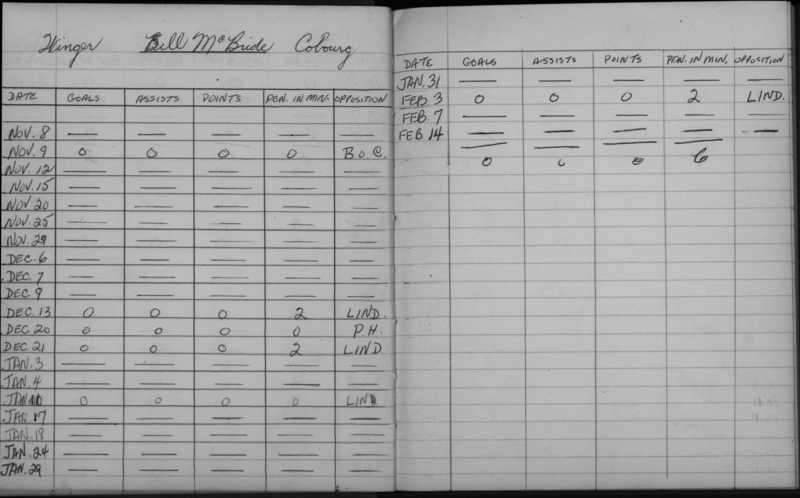 Winger Bill McBride Cobourg
DATE GOALS ASSISTS POINTS PEN. IN MIN. OPPOSITION
NOV. 8 — — — — —
NOV. 9 0 0 0 0 B.O.C.
NOV. 12 — — — — —
NOV. 15 — — — — —
NOV. 20 — — — — —
NOV. 25 — — — — —
NOV. 29 — — — — —
DEC. 6 — — — — —
DEC. 7 — — — — —
DEC. 9 — — — — —
DEC. 13 0 0 0 2 LIND.
DEC. 20 0 0 0 0 P.H.
DEC. 21 0 0 0 2 LIND
JAN. 3 — — — — —
JAN. 4 — — — — —
JAN. 10 0 0 0 0 LIND
JAN. 17 — — — — —
JAN. 18 — — — — —
JAN. 24 — — — — —
JAN. 29 — — — — —
DATE GOALS ASSISTS POINTS PEN. IN MIN. OPPOSITION
JAN. 31 — — — — —
FEB. 3 0 0 0 2 LIND.
FEB. 7 — — — — —
FEB. 14 — — — — —
0 0 0 6